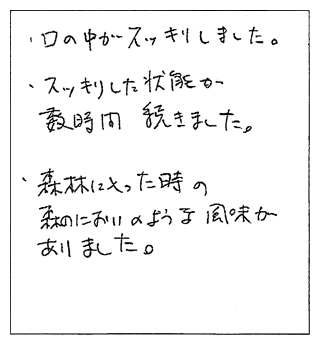 ・口の中がスッキリしました。
・スッキリした状態が
数時間 続きました。
・森林に入った時の
森のにおいのような風味が
ありました。